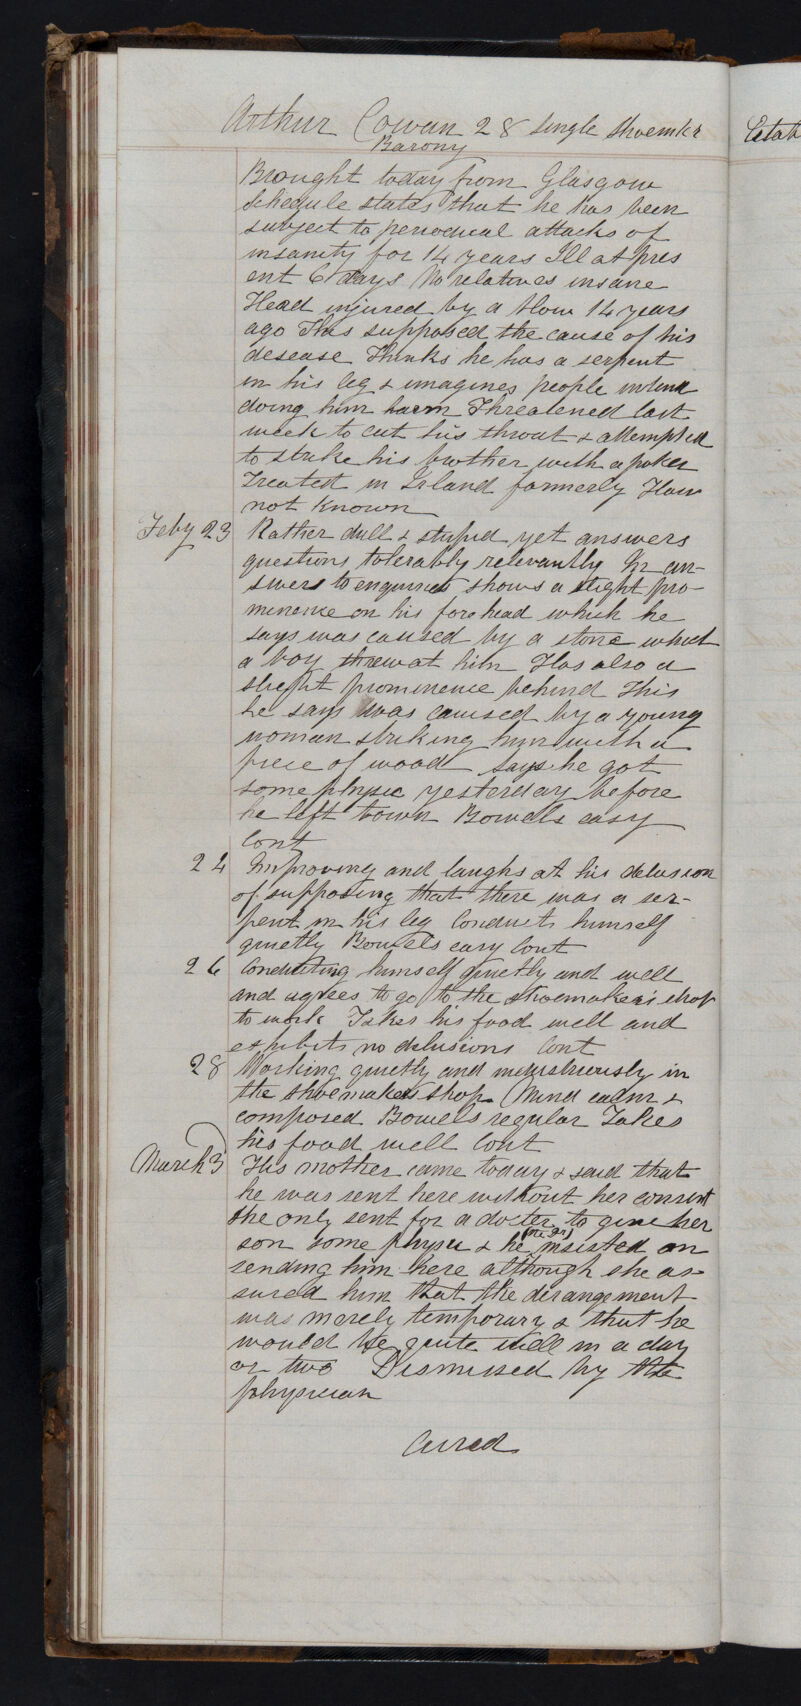 Arthur Cowan 28 Single Shoemkr
Barony
Brought today from Glasgow
Schedule states that he has been
subject to periodical attacks of
insanity for 14 years Ill at pres
ent 6 days No relatives insane
Head injured by a blow 14 years
ago This supposed the cause of his
desease Thinks he has a serpent
in his leg & imagines people intend
doing him harm Threatened last
week to cut his throat & attempted
to strike his brother with a poker
Treated in Irland formerly How
not known
Feby 23 Rather dull & stupid yet answers
questions tolerably relevantly In an-
swers to enquiries shows a slight pro-
minence on his forehead which he
says was caused by a stone which
a boy threw at him Has also a
slight prominence behind This
he says was caused by a young
woman striking him with a
piece of wood says he got
some physic yesterday before
he left town Bowels easy
Cont
24 Improving and laughs at his delusion
of supposing that there was a ser-
pent in his leg Conducts himself
quietly Bowels easy Cont
26 Conducting himself quietly and well
and agrees to go to the shoemaker's shop
to work Takes his food well and
exhibits no delusions Cont
28 Working quietly and industriously in
the shoemakers shop Mind calm &
composed Bowels regular Takes
his food well Cont
March 3 His mother came today & said that
he was sent here without her consent
She only sent for a docter to give her
son some physic & he (the Dr) insisted on
sending him here although she as-
sured him that the derangement
was merely temporary & that he
would be quite well in a day
or two Dismissed by the
physician
Cured
Estab